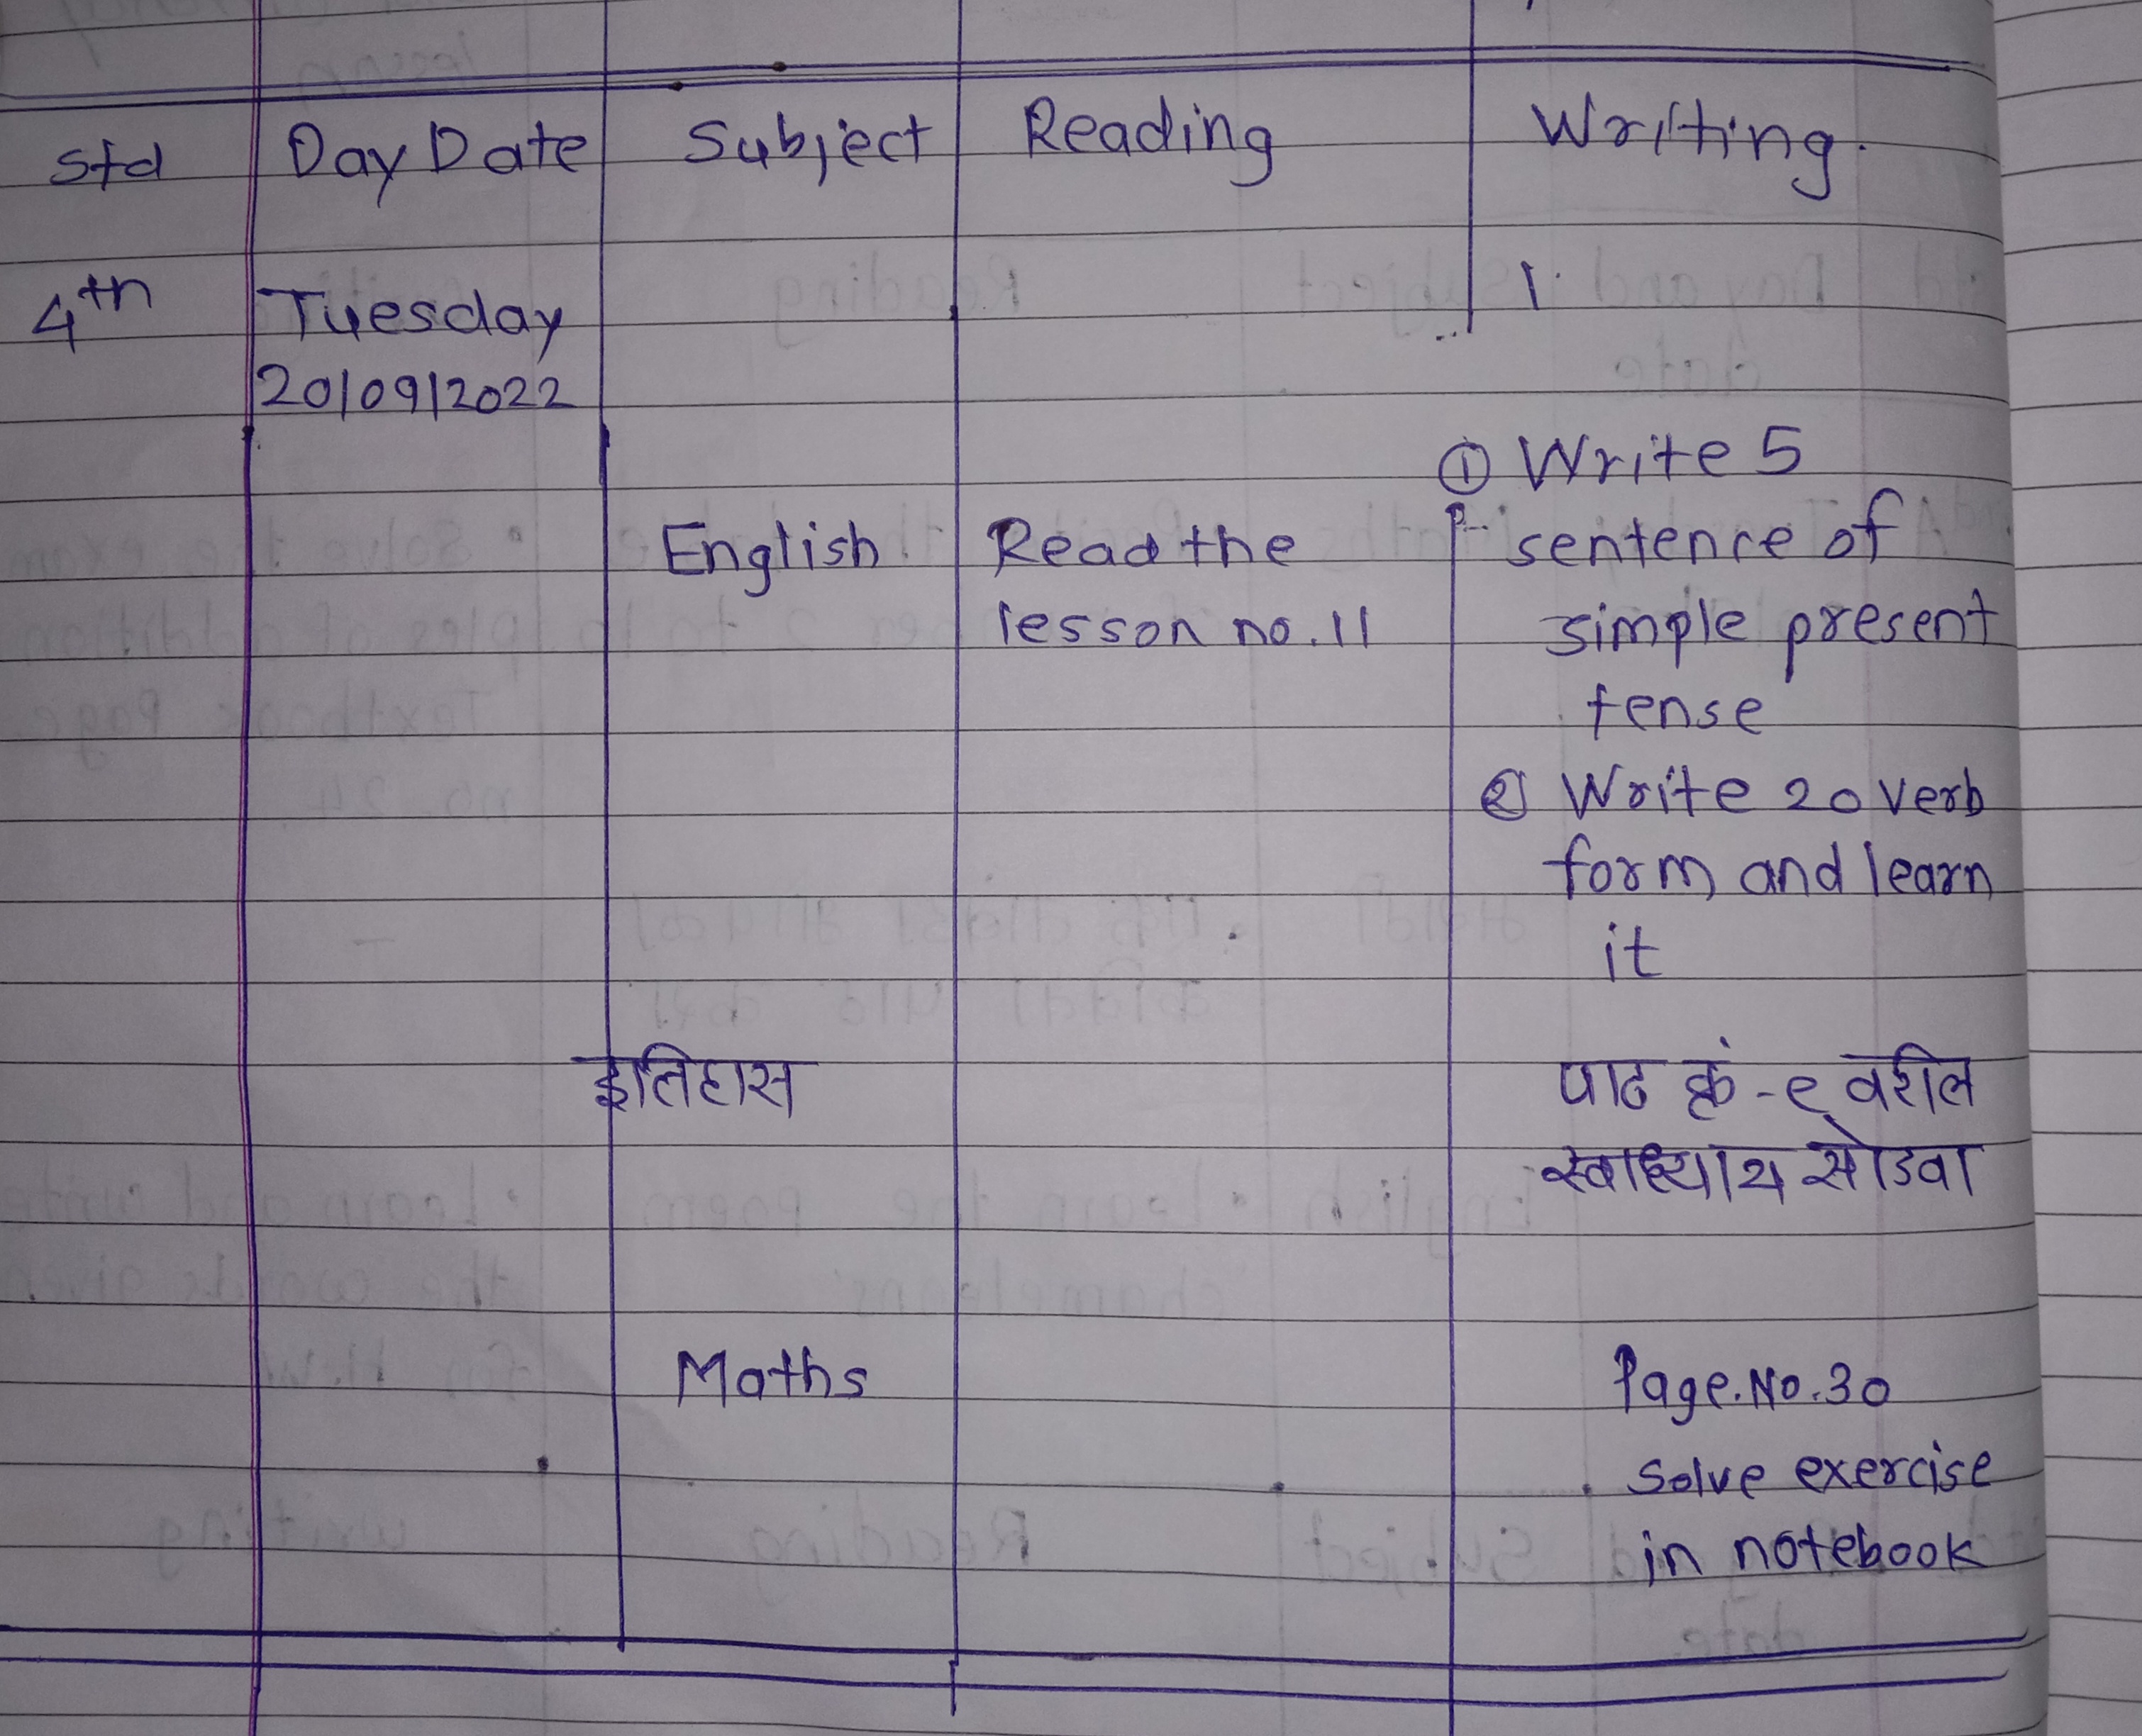 Std Day Date Subject Reading Writing.
4th Tuesday 1.
20/09/2022
① Write 5
English. Read the sentence of
lesson no. 11 simple present
tense
② Write 20 verb
form and learn
it
इतिहास पाठ क्रं - ९ वरील
स्वाध्याय सोडवा
Maths Page. No. 30
Solve exercise
in notebook